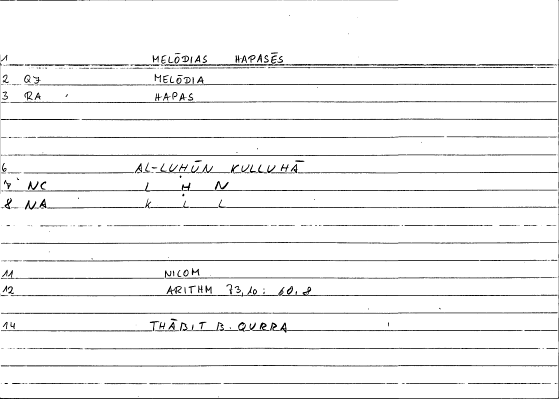 1 MELŌDIAS HAPASĒS
2 QJ MELŌDIA
3 RA HAPAS
6 AL-LUḤŪN KULLUHĀ
7 NC L Ḥ N
8 NA K L L
11 NICOM
12 ARITHM 73,10 : 60,8
14 THĀBIT B. QURRA